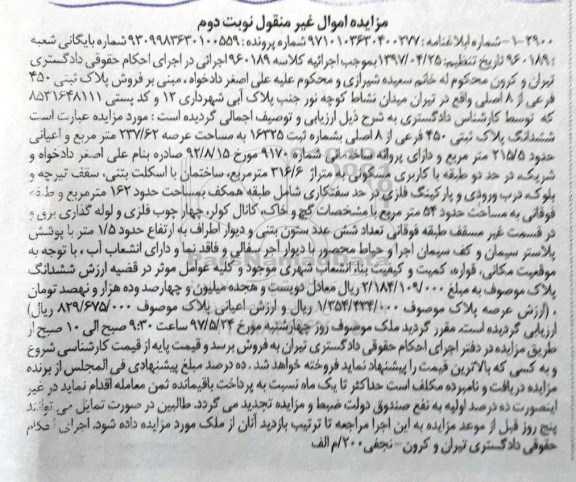 مزایده اموال غیر منقول نوبت دوم
۱-۲۹۰۰-شماره ابلاغنامه: ۹۷۱۰۱۰۳۶۳۰۴۰۰۲۷۷ شماره پرونده: ۹۳۰۹۹۸۳۶۳۰۱۰۰۵۵۹ شماره بایگانی شعبه
: ۹۶۰۱۸۹ تاریخ تنظیم: ۱۳۹۷/۰۴/۲۵ بموجب اجرائیه کلاسه ۹۶۰۱۸۹ اجرائی در اجرای احکام حقوقی دادگستری
تیران و کرون محکوم له خانم سعیده شیرازی و محکوم علیه علی اصغر دادخواه، مبنی بر فروش پلاک ثبتی ۴۵۰
فرعی از ۸ اصلی واقع در تیران میدان نشاط کوچه نور جنب پلاک آبی شهرداری ۱۲ و کد پستی ۸۵۳۱۶۴۸۱۱۱
که توسط کارشناس دادگستری به شرح ذیل ارزیابی و توصیف اجمالی گردیده است: مورد مزایده عبارت است
ششدانگ پلاک ثبتی ۴۵۰ فرعی از ۸ اصلی بشماره ثبت ۱۶۳۲۵ به مساحت عرصه ۲۳۷/۶۲ متر مربع و اعیانی
حدود ۲۱۵/۵ متر مربع و دارای پروانه ساختمانی شماره ۹۱۷۰ مورخ ۹۲/۸/۱۵ صادره بنام علی اصغر دادخواه و
شریک، در حد دو طبقه با کاربری مسکونی به متراژ ۳۱۶/۶ مترمربع، ساختمان با اسکلت بتنی، سقف تیرچه و
بلوک، درب ورودی و پارکینگ فلزی در حد سفتکاری شامل طبقه همکف بمساحت حدود ۱۶۲ مترمربع و طبقه
فوقانی به مساحت حدود ۵۴ متر مربع با مشخصات گچ و خاک، کانال کولر، چهار چوب فلزی و لوله گذاری برق و
در قسمت غیر مسقف طبقه فوقانی تعداد شش عدد ستون بتنی و دیوار اطراف به ارتفاع حدود ۱/۵ متر با پوشش
پلاستر سیمان و کف سیمان اجرا و حیاط محصور با دیوار آجر سفالی و فاقد نما و دارای انشعاب آب، با توجه به
موقعیت مکانی، قواره، کمیت و کیفیت بنا، انشعاب شهری موجود و کلیه عوامل موثر در قضیه ارزش ششدانگ
پلاک موصوف به مبلغ ۲/۱۸۴/۱۰۹/۰۰۰ ریال معادل دویست و هجده میلیون و چهارصد وده هزار و نهصد تومان
. (ارزش عرصه پلاک موصوف ۱/۳۵۴/۴۳۴/۰۰۰ ریال و ارزش اعیانی پلاک موصوف ۸۲۹/۶۷۵/۰۰۰ ریال)
ارزیابی گردیده است. مقرر گردید ملک موصوف روز چهارشنبه مورخ ۹۷/۵/۲۴ ساعت ۹:۳۰ صبح الی ۱۰ صبح از
طریق مزایده در دفتر اجرای احکام حقوقی دادگستری تیران به فروش برسد و قیمت پایه از قیمت کارشناسی شروع
و به کسی که بالاترین قیمت را پیشنهاد نماید فروخته خواهد شد. ده درصد مبلغ پیشنهادی فی المجلس از برنده
مزایده دریافت و نامبرده مکلف است حداکثر تا یک ماه نسبت به پرداخت باقیمانده ثمن معامله اقدام نماید در غیر
اینصورت ده درصد اولیه به نفع صندوق دولت ضبط و مزایده تجدید می گردد. طالبین در صورت تمایل می توانند
پنج روز قبل از موعد مزایده به این اجرا مراجعه تا ترتیب بازدید آنان از ملک مورد مزایده داده شود. اجرای احکام
حقوقی دادگستری تیران و کرون-نجفی ۲۰۰/م الف